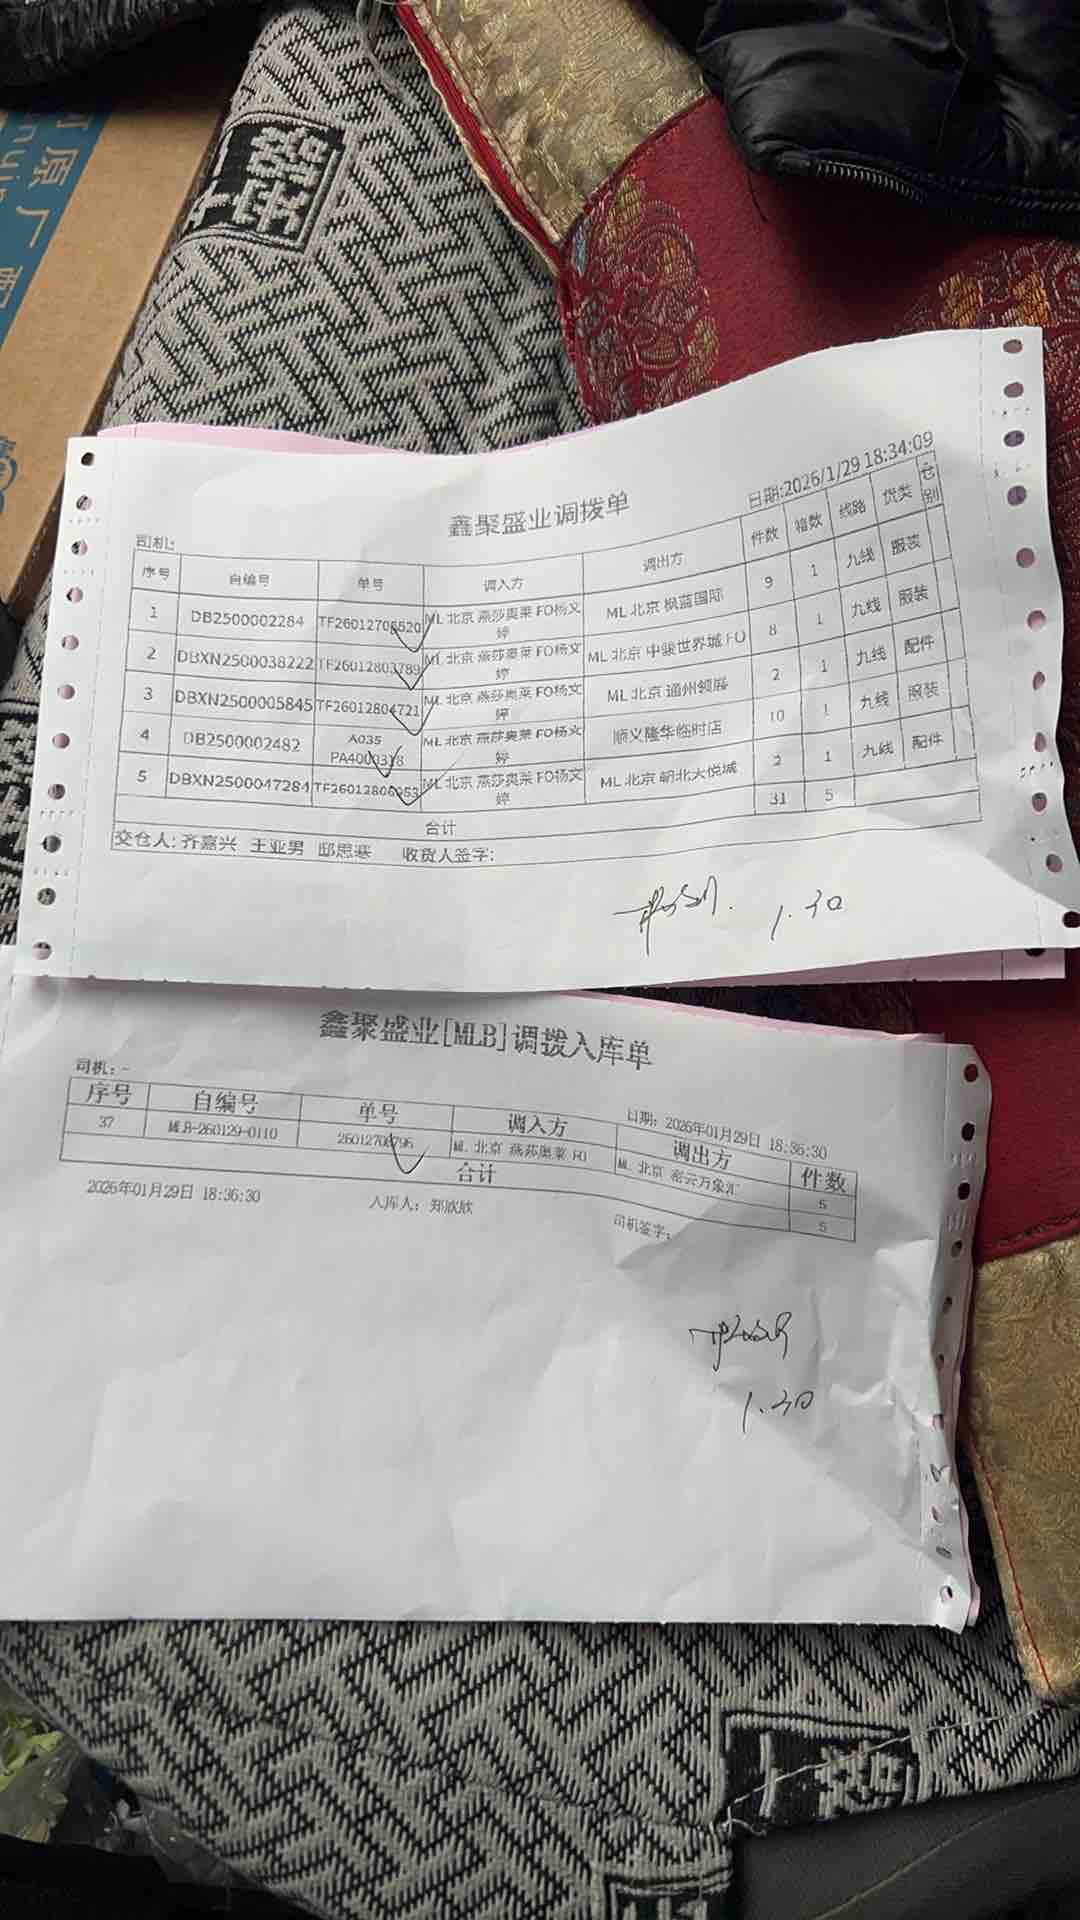 原厂配
鑫聚盛业调拨单
司机: 日期:2026/1/29 18:34:09
序号 自编号 单号 调入方 调出方 件数 箱数 线路 货类 仓别
1 DB2500002284 TF26012706520 ML 北京 燕莎奥莱 FO杨文婷 ML 北京 枫蓝国际 9 1 九线 服装
2 DBXN2500038222 TF26012803789 ML 北京 燕莎奥莱 FO杨文婷 ML 北京 中骏世界城 FO 8 1 九线 服装
3 DBXN2500005845 TF26012804721 ML 北京 燕莎奥莱 FO杨文婷 ML 北京 通州领展 2 1 九线 配件
4 DB2500002482 A035 PA4000318 ML 北京 燕莎奥莱 FO杨文婷 顺义隆华临时店 10 1 九线 服装
5 DBXN2500047284 TF26012806953 ML 北京 燕莎奥莱 FO杨文婷 ML 北京 朝北大悦城 2 1 九线 配件
合计 31 5
交仓人: 齐嘉兴 王亚男 邸思寒 收货人签字:
1.30
鑫聚盛业[MLB]调拨入库单
司机: - 日期: 2026年01月29日 18:36:30
序号 自编号 单号 调入方 调出方 件数
37 MLB-260129-0110 26012708796 ML 北京 燕莎奥莱 FO ML 北京 密云万象汇 5
合计 5
2026年01月29日 18:36:30 入库人: 郑欣欣 司机签字:
1.30